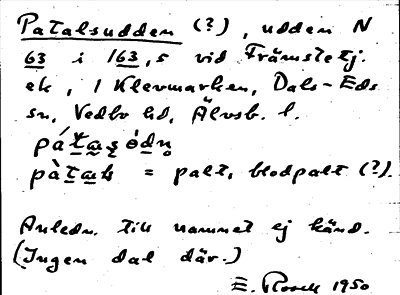 Patalsudden (?), udden N
63 i 163,5 vid Främstetj.
ek, i Klevmarken, Dals-Eds
sn, Vedbo hd, Älvsb. l.
= palt, blodpalt (?).
Anledn. till namnet ej känd.
(Ingen dal där.)
E. 1950